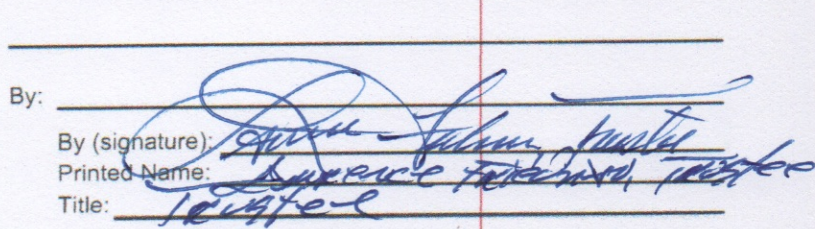 By:
By (signature): Trustee
Printed Name: Laurence Freedman, Trustee
Title: Trustee